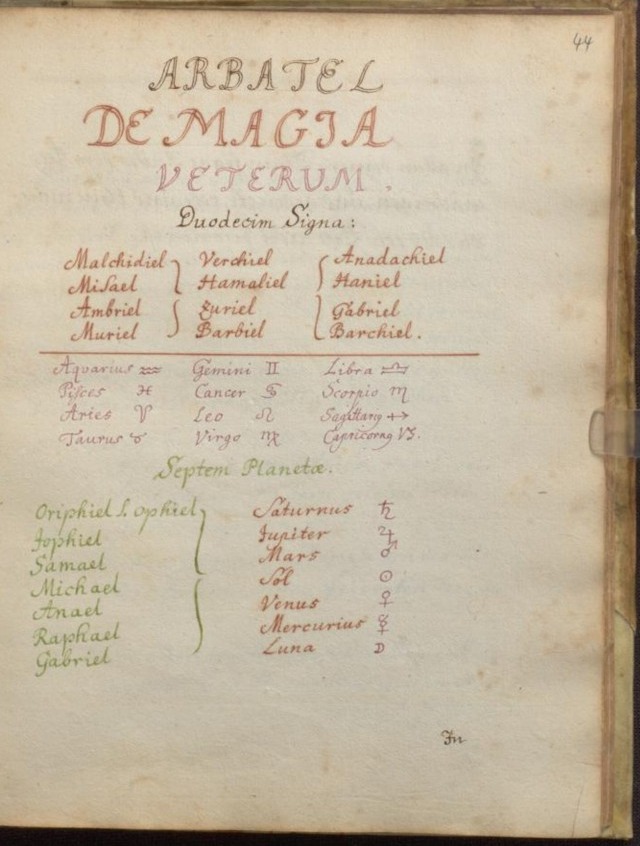 44
ARBATEL
DE MAGIA
VETERUM.
Duodecim Signa:
Malchidiel Verchiel Anadachiel
Misael Hamaliel Haniel
Ambriel Zuriel Gabriel
Muriel Barbiel Barchiel.
Aquarius ♒ Gemini ♊ Libra ♎
Pisces ♓ Cancer ♋ Scorpio ♏
Aries ♈ Leo ♌ Sagittarÿ ♐
Taurus ♉ Virgo ♍ Capricorny ♑.
Septem Planetæ.
Oriphiel s. Ophiel Saturnus ♄
Jophiel Jupiter ♃
Samael Mars ♂
Michael Sol ☉
Anael Venus ♀
Raphael Mercurius ☿
Gabriel Luna ☽
In